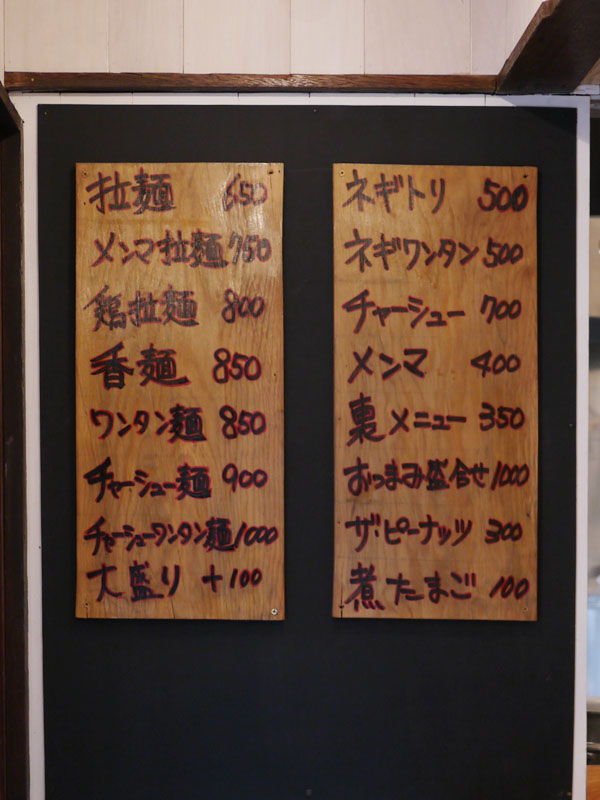 拉麺 650
メンマ拉麺 750
鶏拉麺 800
香麺 850
ワンタン麺 850
チャーシュー麺 900
チャーシューワンタン麺 1000
大盛り +100
ネギトリ 500
ネギワンタン 500
チャーシュー 700
メンマ 400
裏メニュー 350
おつまみ盛合せ 1000
ザ・ピーナッツ 300
煮たまご 100